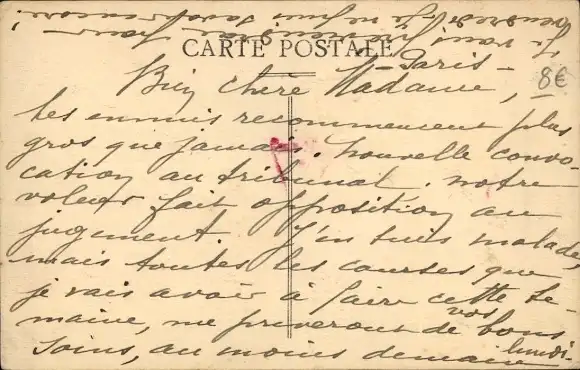 CARTE POSTALE
Paris –
8€
Bien chère Madame,
Les ennuis recommencent plus
gros que jamais. Nouvelle convo-
cation au tribunal. notre
voleur fait opposition au
jugement. J'en suis malade,
mais toutes les courses que
je vais avoir à faire cette se-
maine, me priveront de vos bons
soins, au moins demain lundi-
Je